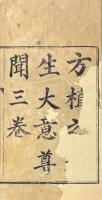 方植之
生大意尊
聞三卷